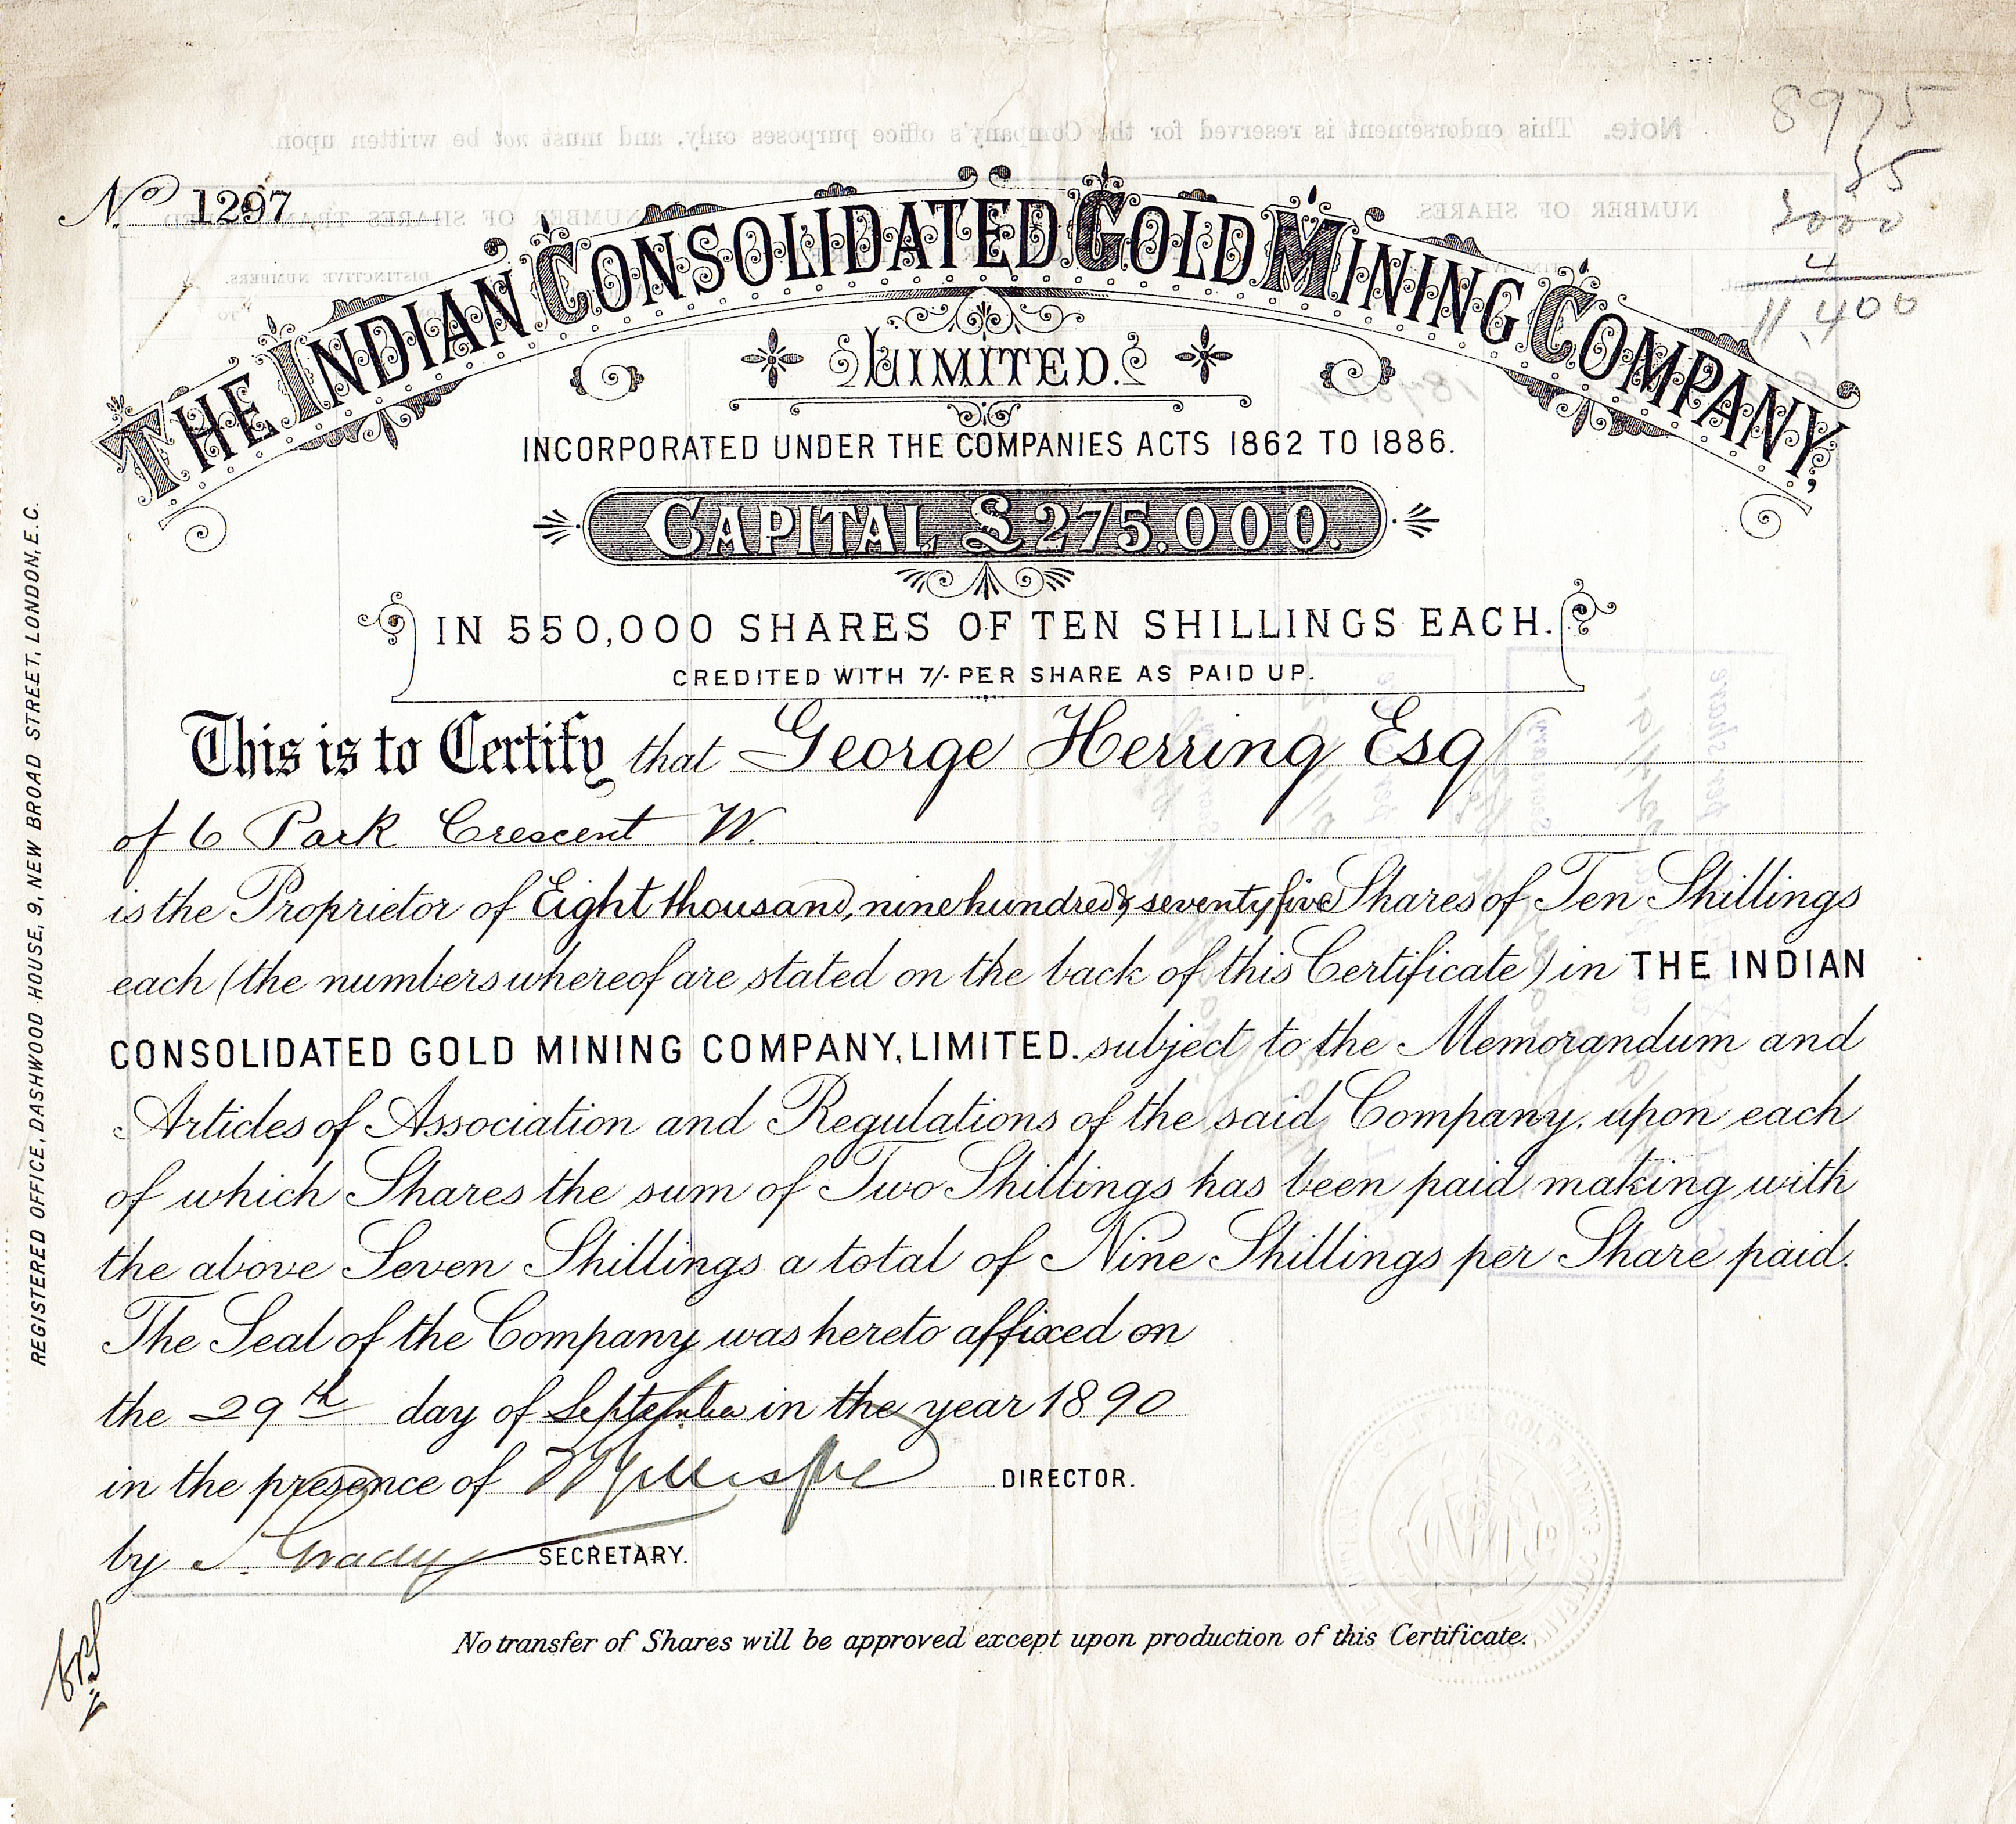 8975
3000
4
11,400
No 1297
THE INDIAN CONSOLIDATED GOLD MINING COMPANY,
LIMITED.
INCORPORATED UNDER THE COMPANIES ACTS 1862 TO 1886.
CAPITAL £275.000.
IN 550,000 SHARES OF TEN SHILLINGS EACH.
CREDITED WITH 7/- PER SHARE AS PAID UP.
This is to Certify that George Herring Esq
of 6 Park Crescent W.
is the Proprietor of Eight thousand, nine hundred & seventy five Shares of Ten Shillings
each (the numbers whereof are stated on the back of this Certificate) in THE INDIAN
CONSOLIDATED GOLD MINING COMPANY, LIMITED. subject to the Memorandum and
Articles of Association and Regulations of the said Company, upon each
of which Shares the sum of Two Shillings has been paid making with
the above Seven Shillings a total of Nine Shillings per Share paid.
The Seal of the Company was hereto affixed on
the 29th day of September in the year 1890
in the presence of DIRECTOR.
by SECRETARY.
No transfer of Shares will be approved except upon production of this Certificate.
REGISTERED OFFICE, DASHWOOD HOUSE, 9, NEW BROAD STREET, LONDON, E.C.
Note. This endorsement is reserved for the Company's office purposes only, and must not be written upon.
NUMBER OF SHARES.
NUMBER OF SHARES
DISTINCTIVE NUMBERS.